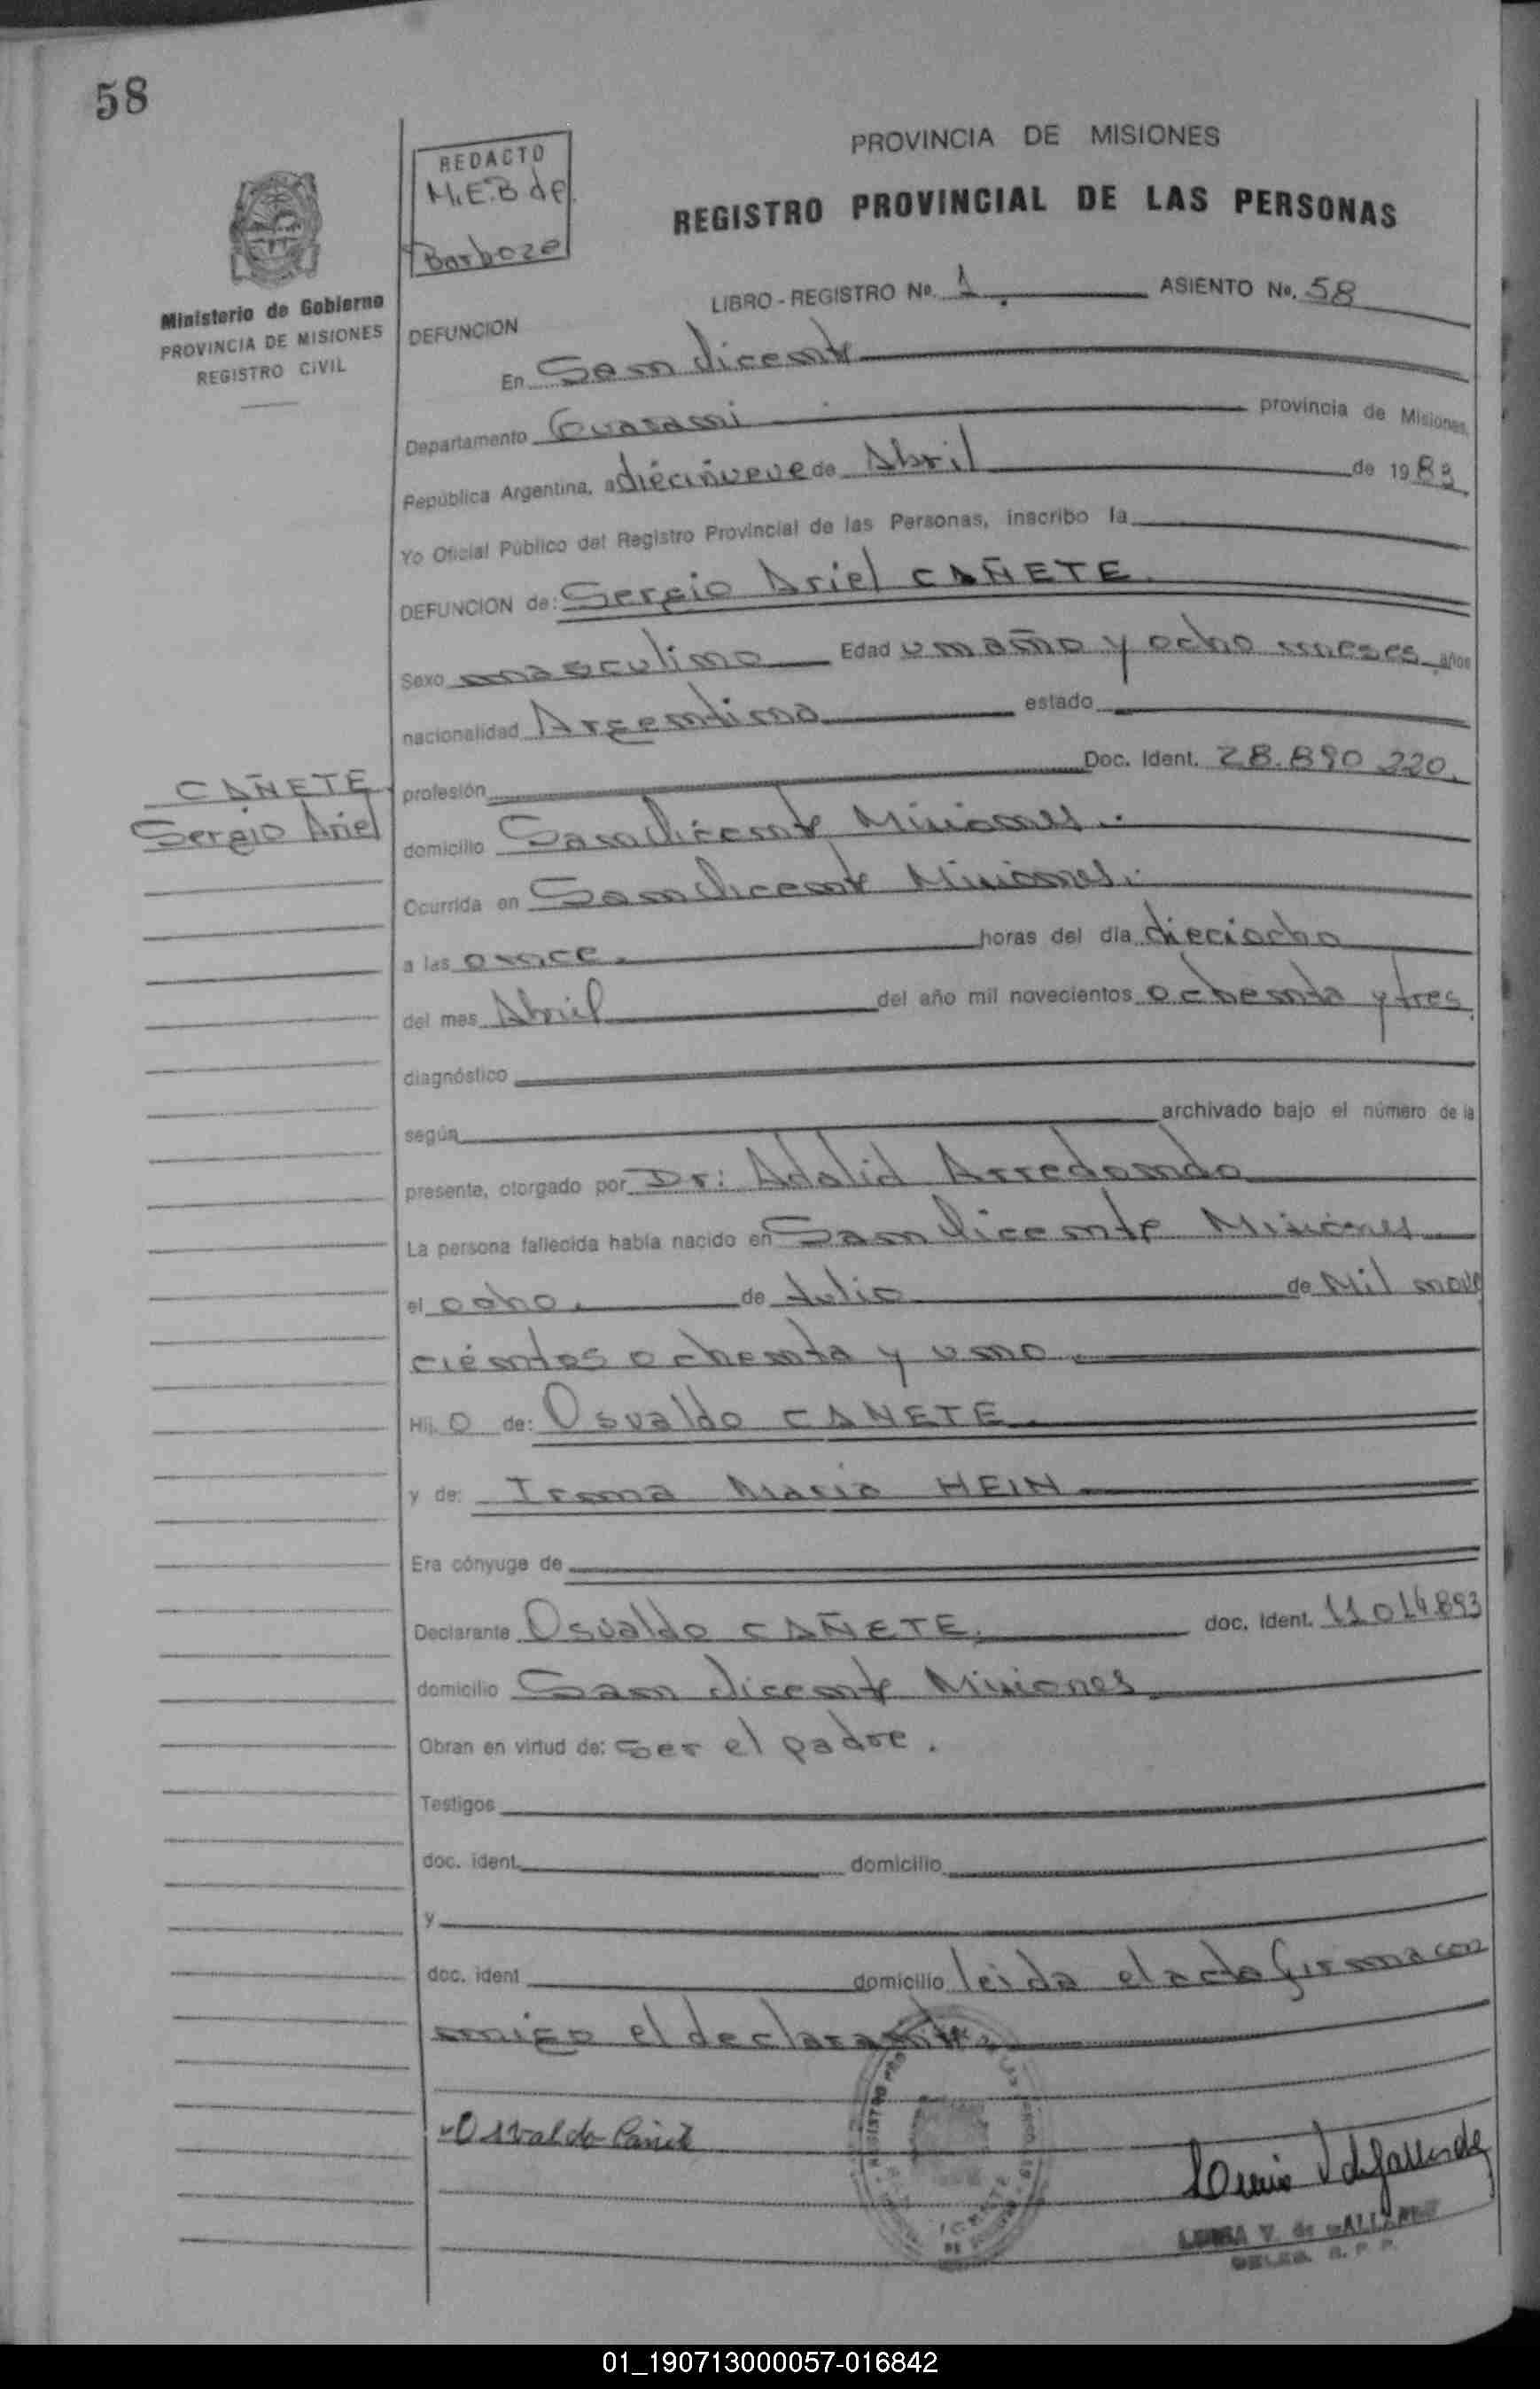 58
REDACTO
M.E.B de
Barboze
PROVINCIA DE MISIONES
REGISTRO PROVINCIAL DE LAS PERSONAS
Ministerio de Gobierno
PROVINCIA DE MISIONES
REGISTRO CIVIL
LIBRO - REGISTRO Nº. 1. ASIENTO Nº. 58
DEFUNCION
En San Vicente
Departamento Guarani provincia de Misiones,
República Argentina, a diecinueve de Abril de 1983.
Yo Oficial Público del Registro Provincial de las Personas, inscribo la
DEFUNCION de: Sergio Ariel CAÑETE.
Sexo masculino Edad un año y ocho meses años
nacionalidad Argentino estado
CAÑETE
Sergio Ariel
profesión Doc. Ident. 28.890.220.
domicilio San Vicente Misiones.
Ocurrida en San Vicente Misiones.
a las once. horas del día dieciocho
del mes Abril del año mil novecientos ochenta y tres.
diagnóstico
según archivado bajo el número de la
presente, otorgado por Dr: Adalid Arredondo
La persona fallecida había nacido en San Vicente Misiones
el ocho. de Julio de Mil nove
cientos ochenta y uno.
Hij O de: Osvaldo CAÑETE.
y de: Irma Maria HEIN
Era cónyuge de
Declarante Osvaldo CAÑETE. doc. Ident. 11.014.893
domicilio San Vicente Misiones
Obran en virtud de: ser el padre.
Testigos
doc. ident. domicilio
y
doc. ident domicilio leida el acta firma con
migo el declarante
Osvaldo Cañete
V. de GALLARDO
R. P. P.
01_190713000057-016842